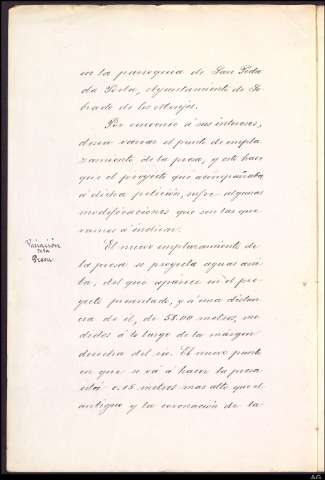 en la parroquia de San Pedro
da Porta, Ayuntamiento de So-
brado de los Monjes.
Por convenir á sus intereses,
desea variar el punto de empla-
zamiento de la presa, y esto hace
que el proyecto que acompañaba
á dicha petición, sufra algunas
modificaciones que son las que
vamos á indicar.
Variación
de la
Presa.
El nuevo emplazamiento de
la presa se proyecta aguas arri-
ba, del que aparece en el pro-
yecto presentado, y á una distan-
cia de él, de 58.00 metros, me-
didos á lo largo de la márgen
derecha del rio. El nuevo punto
en que se vá á hacer la presa
está 0.15 metros mas alto que el
antiguo y la coronación de la
AG